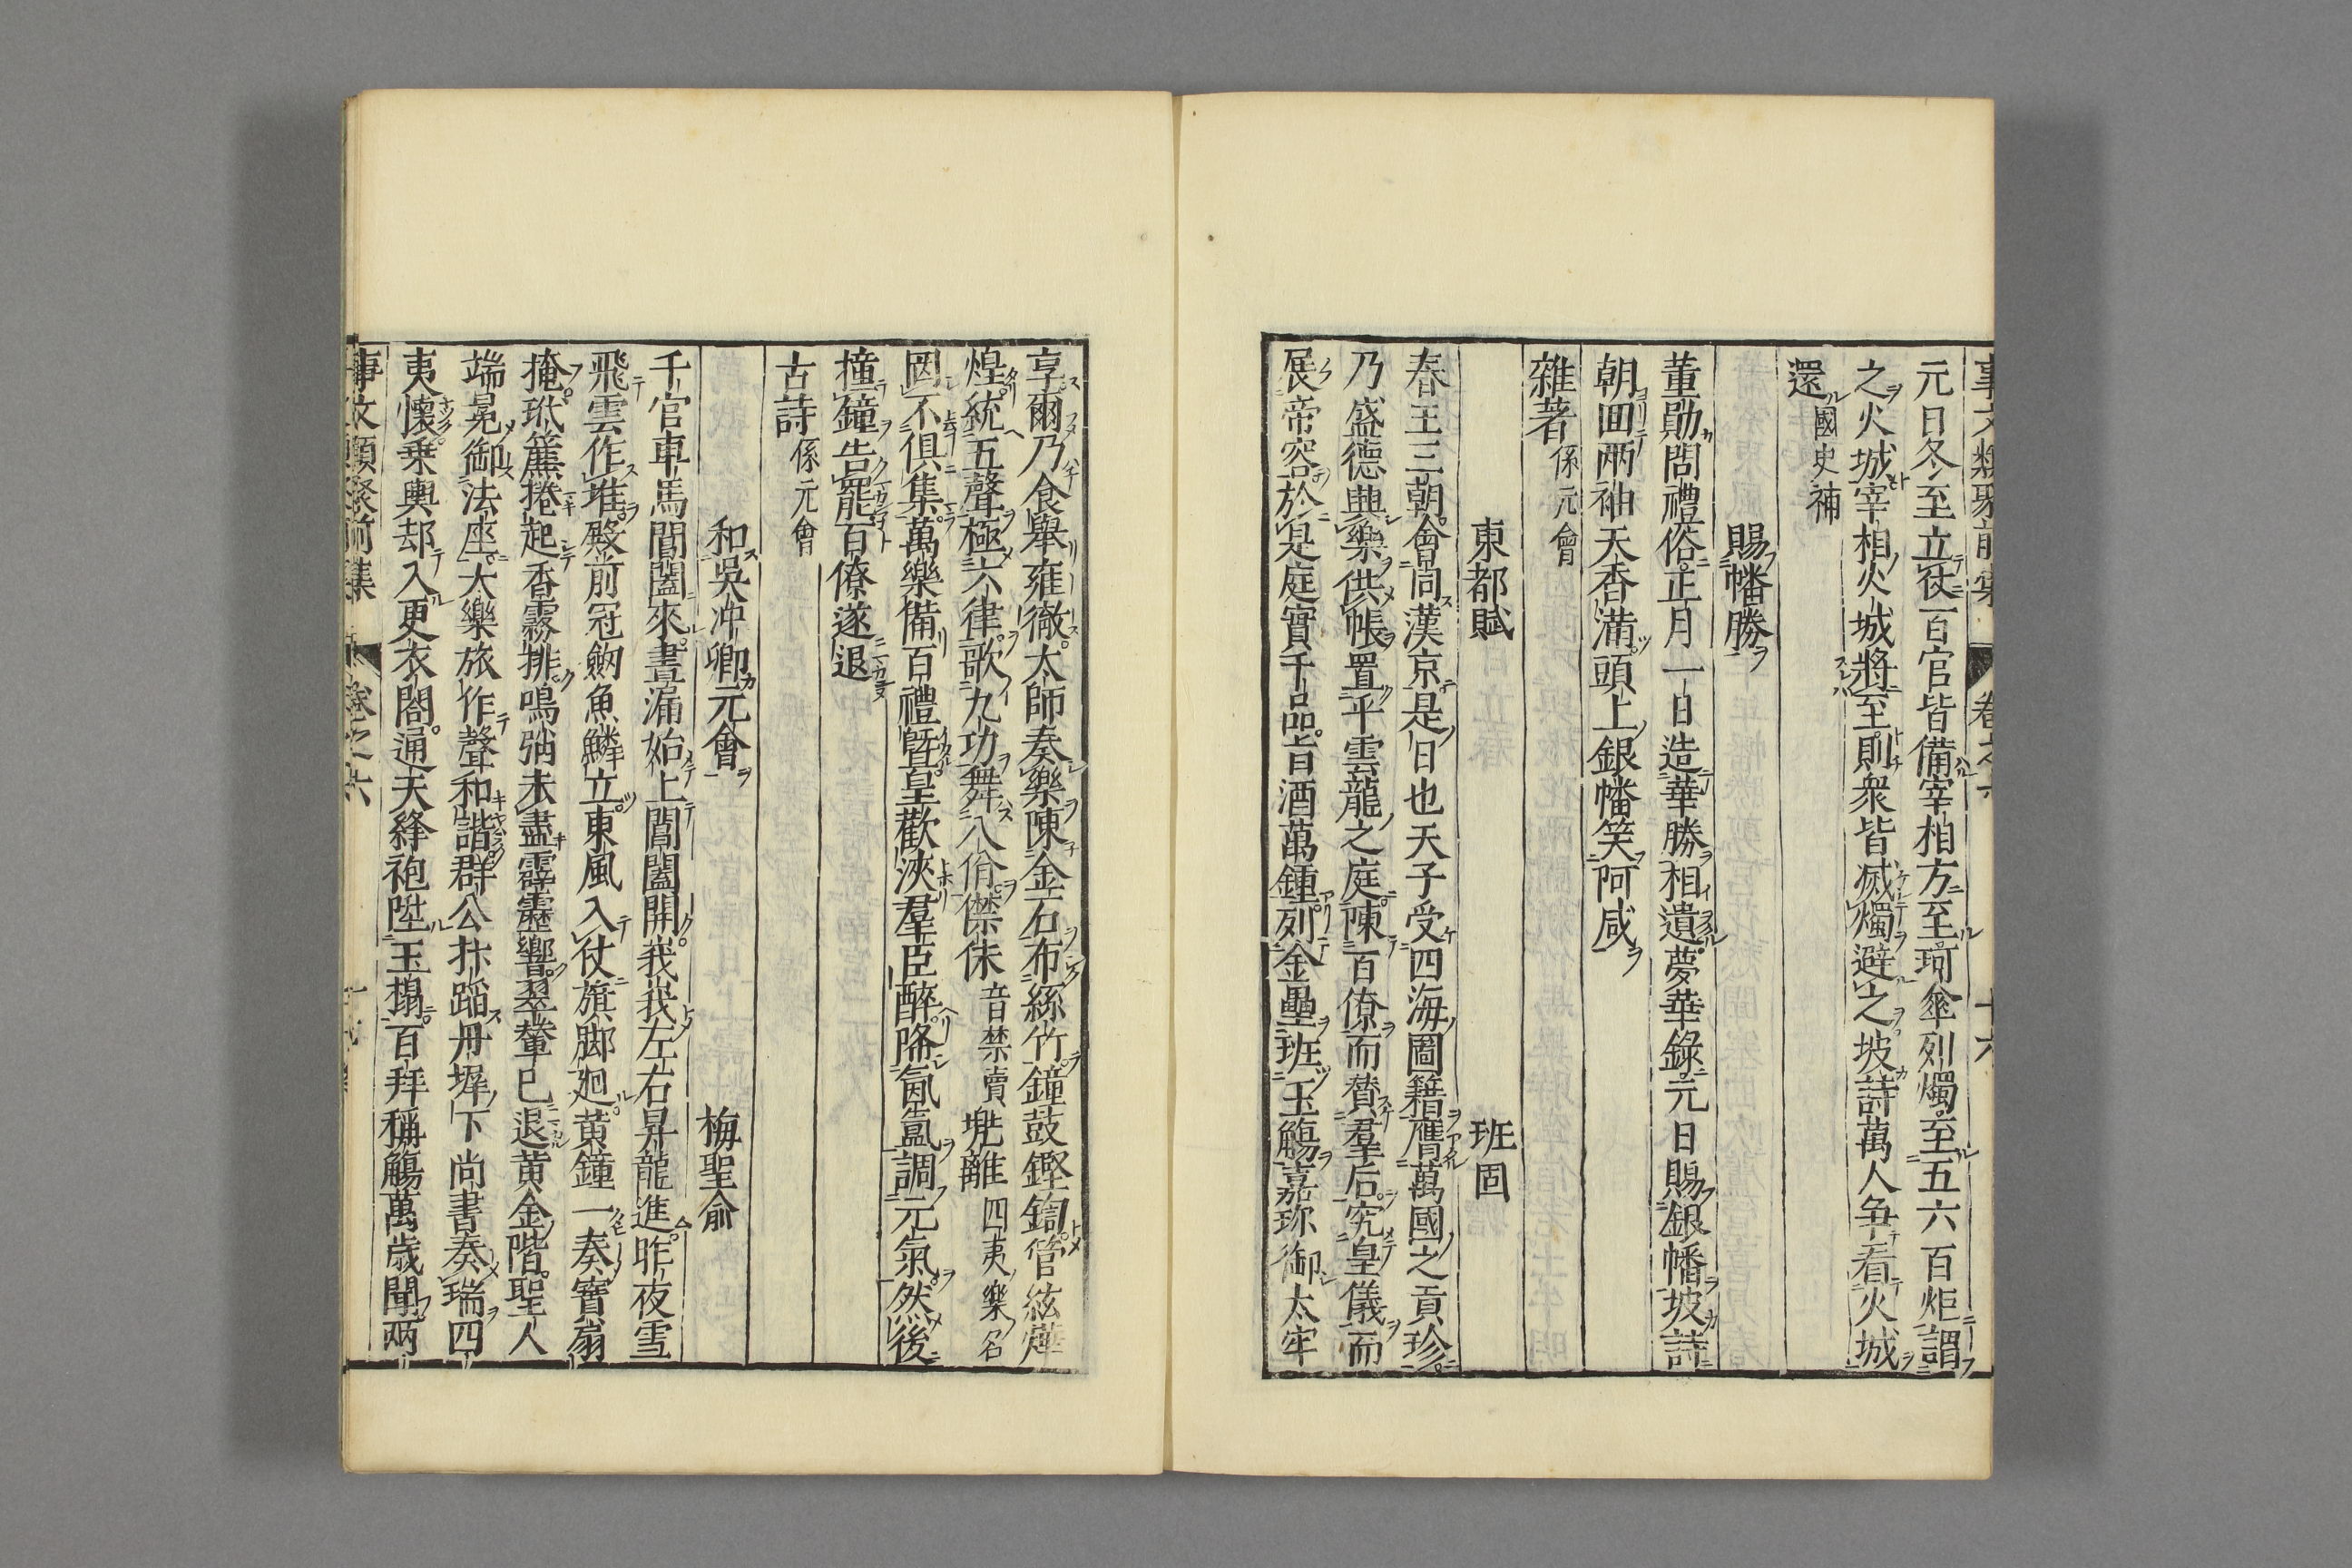 事文類聚前集 卷之六 十六
元日冬至立仗百官皆備宰相方至珂傘列燭至五六百炬謂
之火城宰相火城將至則衆皆滅燭避之坡詩萬人争看火城
還 國史補
賜幡勝
董勛問禮俗正月一日造華勝相遺夢華錄元日賜銀幡坡詩
朝回兩袖天香滿頭上銀幡笑阿咸
雜著 係元會
東都賦 班固
春王三朝會同漢京是日也天子受四海圖籍膺萬國之貢珍
乃盛德興樂供帳置乎雲龍之庭陳百僚而賛羣后究皇儀而
展帝容於是庭實千品旨酒萬鍾列金罍班玉觴嘉珍御太牢
享爾乃食舉雍徹太師奏樂陳金石布絲竹鐘鼓鏗鍧管絃燁
煌統五聲極六律歌九功舞八佾㑋侏 音禁賣 兠離 四夷樂名
罔不俱集萬樂備百禮曁皇歡浹羣臣醉降氤氳調元氣然後
撞鐘告罷百僚遂退
古詩 係元會
和吳冲卿元會 梅聖俞
千官車馬閶闔來晝漏始上閶闔開峩峩左右昇龍進昨夜雪
飛雲作堆殿前冠劒魚鱗立東風入仗旗脚廻黄鐘一奏寶扇
掩玳簾捲起香霧排鳴弰未盡霹靂響翠輦已退黄金階聖人
端冕御法座太樂旅作聲和諧群公抃蹈丹墀下尚書奏瑞四
夷懷乗輿却入更衣閤通天絳袍陞玉榻百拜稱觴萬歲聞兩
事文類聚前集 卷之六